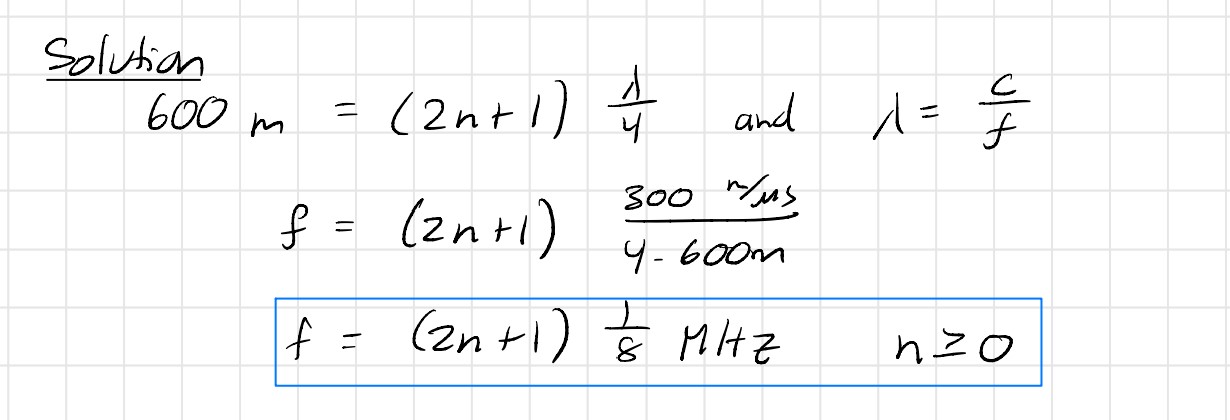 Solution
600 m = (2n+1) λ/4 and λ = c/f
f = (2n+1) 300 m/μs / 4·600m
f = (2n+1) 1/8 MHz n ≥ 0